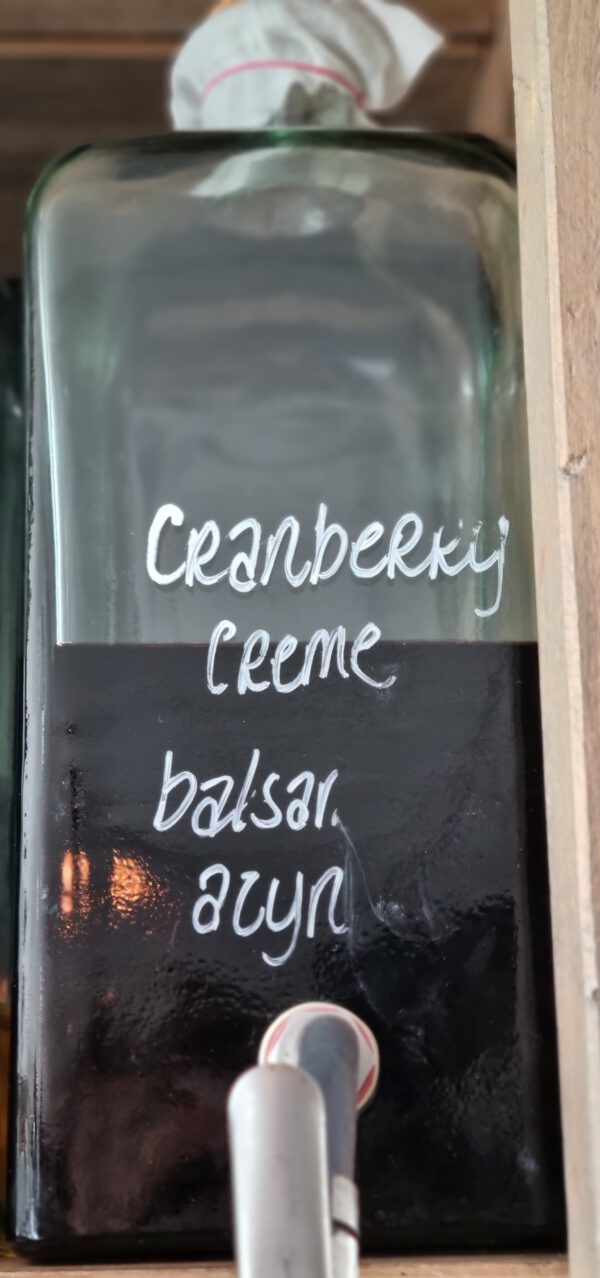 Cranberry
creme
balsam.
azyn